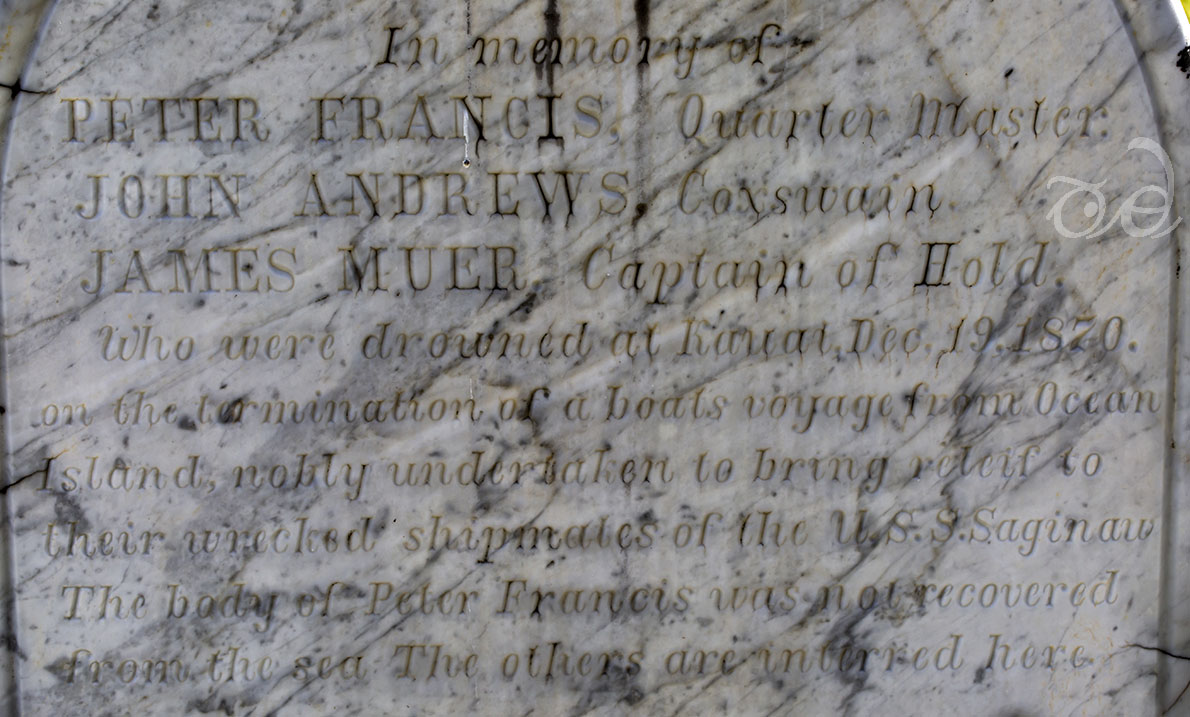 In memory of
PETER FRANCIS. Quarter Master.
JOHN ANDREWS. Coxswain.
JAMES MUER. Captain of Hold.
Who were drowned at Kauai, Dec. 19. 1870.
on the termination of a boats voyage from Ocean
Island, nobly undertaken to bring releif to
their wrecked shipmates of the U.S.S. Saginaw
The body of Peter Francis was not recovered
from the sea The others are interred here